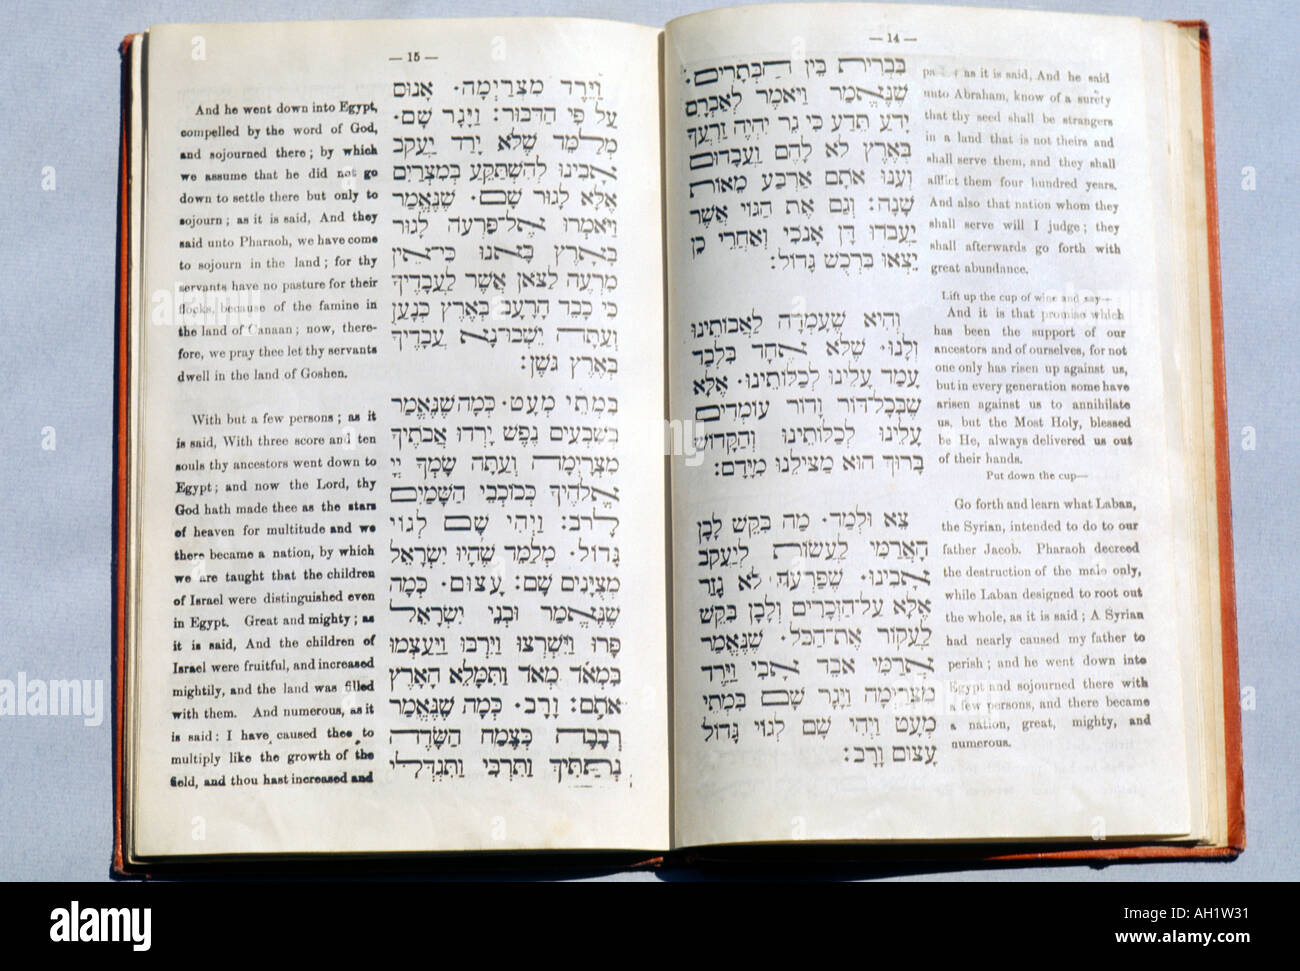 — 14 —
בִּבְרִית בֵּין הַבְּתָרִים׃
שֶׁנֶּאֱמַר וַיֹּאמֶר לְאַבְרָם
יָדֹעַ תֵּדַע כִּי גֵר יִהְיֶה זַרְעֲךָ
בְּאֶרֶץ לֹא לָהֶם וַעֲבָדוּם
וְעִנּוּ אֹתָם אַרְבַּע מֵאוֹת
שָׁנָה׃ וְגַם אֶת הַגּוֹי אֲשֶׁר
יַעֲבֹדוּ דָּן אָנֹכִי וְאַחֲרֵי כֵן
יֵצְאוּ בִּרְכֻשׁ גָּדוֹל׃
וְהִיא שֶׁעָמְדָה לַאֲבוֹתֵינוּ
וְלָנוּ· שֶׁלֹּא אֶחָד בִּלְבַד
עָמַד עָלֵינוּ לְכַלּוֹתֵינוּ· אֶלָּא
שֶׁבְּכָל־דּוֹר וָדוֹר עוֹמְדִים
עָלֵינוּ לְכַלּוֹתֵינוּ וְהַקָּדוֹשׁ
בָּרוּךְ הוּא מַצִּילֵנוּ מִיָּדָם׃
צֵא וּלְמַד· מַה בִּקֵּשׁ לָבָן
הָאֲרַמִּי לַעֲשׂוֹת לְיַעֲקֹב
אָבִינוּ· שֶׁפַּרְעֹה לֹא גָזַר
אֶלָּא עַל־הַזְּכָרִים וְלָבָן בִּקֵּשׁ
לַעֲקוֹר אֶת־הַכֹּל· שֶׁנֶּאֱמַר
אֲרַמִּי אֹבֵד אָבִי וַיֵּרֶד
מִצְרַיְמָה וַיָּגָר שָׁם בִּמְתֵי
מְעָט וַיְהִי שָׁם לְגוֹי גָּדוֹל
עָצוּם וָרָב׃
as it is said, And he said
unto Abraham, know of a surety
that thy seed shall be strangers
in a land that is not theirs and
shall serve them, and they shall
afflict them four hundred years.
And also that nation whom they
shall serve will I judge ; they
shall afterwards go forth with
great abundance.
Lift up the cup of wine and say—
And it is that promise which
has been the support of our
ancestors and of ourselves, for not
one only has risen up against us,
but in every generation some have
arisen against us to annihilate
us, but the Most Holy, blessed
be He, always delivered us out
of their hands.
Put down the cup—
Go forth and learn what Laban,
the Syrian, intended to do to our
father Jacob. Pharaoh decreed
the destruction of the male only,
while Laban designed to root out
the whole, as it is said ; A Syrian
had nearly caused my father to
perish ; and he went down into
Egypt and sojourned there with
a few persons, and there became
a nation, great, mighty, and
numerous.
— 15 —
וַיֵּרֶד מִצְרַיְמָה· אָנוּס
עַל פִּי הַדִּבּוּר׃ וַיָּגָר שָׁם·
מְלַמֵּד שֶׁלֹּא יָרַד יַעֲקֹב
אָבִינוּ לְהִשְׁתַּקֵּעַ בְּמִצְרַיִם
אֶלָּא לָגוּר שָׁם· שֶׁנֶּאֱמַר
וַיֹּאמְרוּ אֶל־פַּרְעֹה לָגוּר
בָּאָרֶץ בָּאנוּ כִּי־אֵין
מִרְעֶה לַצֹּאן אֲשֶׁר לַעֲבָדֶיךָ
כִּי כָבֵד הָרָעָב בְּאֶרֶץ כְּנָעַן
וְעַתָּה יֵשְׁבוּ־נָא עֲבָדֶיךָ
בְּאֶרֶץ גֹּשֶׁן׃
בִּמְתֵי מְעָט· כְּמָה שֶׁנֶּאֱמַר
בְּשִׁבְעִים נֶפֶשׁ יָרְדוּ אֲבֹתֶיךָ
מִצְרָיְמָה וְעַתָּה שָׂמְךָ יְיָ
אֱלֹהֶיךָ כְּכוֹכְבֵי הַשָּׁמַיִם
לָרֹב׃ וַיְהִי שָׁם לְגוֹי
גָּדוֹל· מְלַמֵּד שֶׁהָיוּ יִשְׂרָאֵל
מְצֻיָּנִים שָׁם׃ עָצוּם· כְּמָה
שֶׁנֶּאֱמַר וּבְנֵי יִשְׂרָאֵל
פָּרוּ וַיִּשְׁרְצוּ וַיִּרְבּוּ וַיַּעַצְמוּ
בִּמְאֹד מְאֹד וַתִּמָּלֵא הָאָרֶץ
אֹתָם׃ וָרָב· כְּמָה שֶׁנֶּאֱמַר
רְבָבָה כְּצֶמַח הַשָּׂדֶה
נְתַתִּיךְ וַתִּרְבִּי וַתִּגְדְּלִי
And he went down into Egypt,
compelled by the word of God,
and sojourned there ; by which
we assume that he did not go
down to settle there but only to
sojourn ; as it is said, And they
said unto Pharaoh, we have come
to sojourn in the land ; for thy
servants have no pasture for their
flocks, because of the famine in
the land of Canaan ; now, there-
fore, we pray thee let thy servants
dwell in the land of Goshen.
With but a few persons ; as it
is said, With three score and ten
souls thy ancestors went down to
Egypt ; and now the Lord, thy
God hath made thee as the stars
of heaven for multitude and we
there became a nation, by which
we are taught that the children
of Israel were distinguished even
in Egypt. Great and mighty ; as
it is said, And the children of
Israel were fruitful, and increased
mightily, and the land was filled
with them. And numerous, as it
is said : I have caused thee to
multiply like the growth of the
field, and thou hast increased and
alamy
Image ID: AH1W31
www.alamy.com